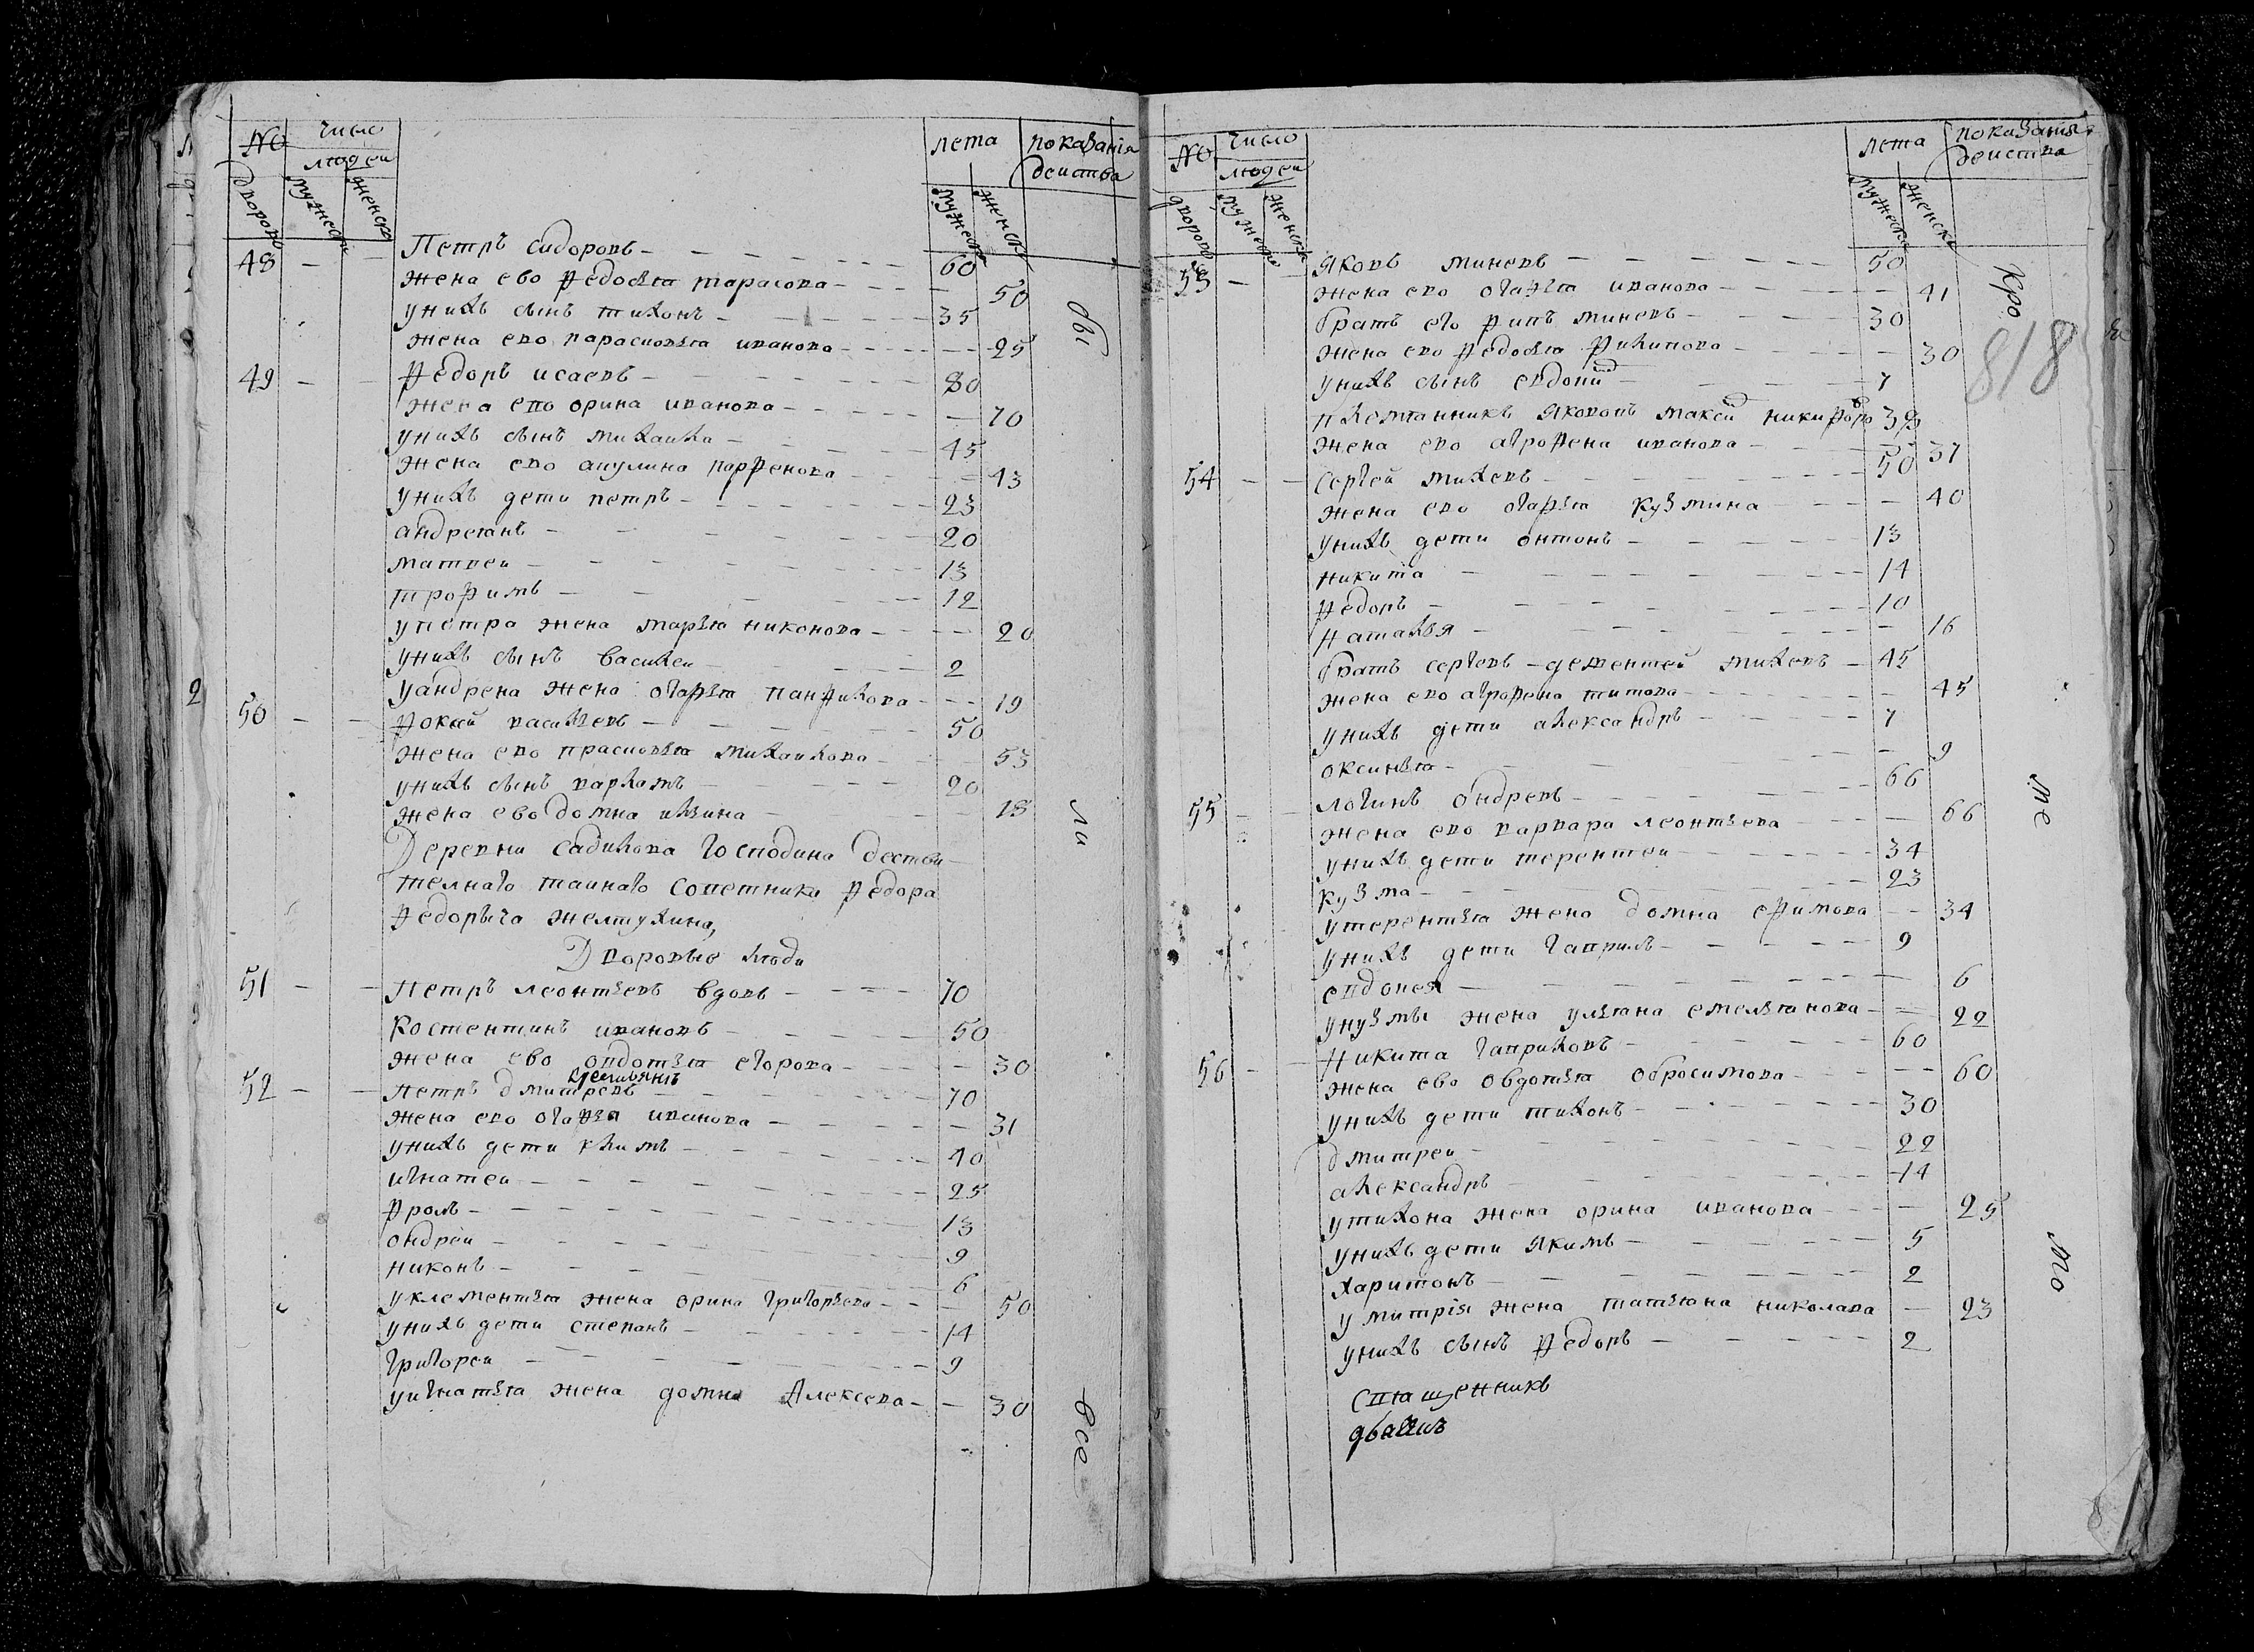 № число лета показания
людей действа
дворовъ мужеска женска мужеска женска
48 Петръ сидоровъ 60
жена ево федосья тарасова 50
унихъ сынъ тихонъ 35
жена ево парасковья иванова 25
49 Федоръ исаевъ 80
жена ево орина иванова 70
унихъ сынъ михаила 45
жена ево акулина парфенова 43
унихъ дети петръ 23
андреянъ 20
матвеи 13
трофимъ 12
упетра жена марья никонова 20
унихъ сынъ василеи 2
уандрена жена огафья панфилова 19
50 Фокъй васильевъ 50
жена ево прасковья михаилова 53
унихъ сынъ варламъ 20
жена ево домна ильина 18
Деревни садилова господина дестви
телнаго таинаго советника федора
федорыча желтухина,
Дворовые люди
51 Петръ леонтьевъ вдовъ 70
костентинъ ивановъ 50
жена ево овдотья егорова 30
крестьянъ
52 Петръ дмитревъ 70
жена ево огафья иванова 31
унихъ дети климъ 40
игнатеи 25
фролъ 13
ондреи 9
никонъ 6
уклементья жена орина григорьева 50
унихъ дети степанъ 14
григореи 9
уигнатья жена домна Алексева 30
бы
ли
все
№ число лета показания
людей действа
дворовъ мужеска женска мужеска женска
53 яковъ миневъ 50
жена ево огафья иванова 41
братъ его фипъ миневъ 30
жена ево федосья филипова 30
унихъ сынъ евдоким 7
племянникъ яковопъ максим никифоро 39
жена ево агрофена иванова 37
54 Сергей михевъ 50
жена ево огафья кузмина 40
унихъ дети онтонъ 13
никита 14
федоръ 10
наталья 16
братъ сергевъ дементей михевъ 45
жена ево агрофена титова 45
унихъ дети александръ 7
оксинья 9
55 логинъ ондревъ 66
жена ево варвара леонтьева 66
унихъ дети терентеи 34
кузма 23
утерентья жена домна ефимова 34
унихъ дети гаврилъ 9
евдокея 6
укузмы жена ульяна емельянова 22
56 Никита гавриловъ 60
жена ево овдотья обросимова 60
унихъ дети тихонъ 30
дмитреи 22
александръ 14
утихона жена орина иванова 25
унихъ дети якимъ 5
харитонъ 2
умитрія жена татьяна николава 23
унихъ сынъ федоръ 2
священникъ
Кро
ме
то
818